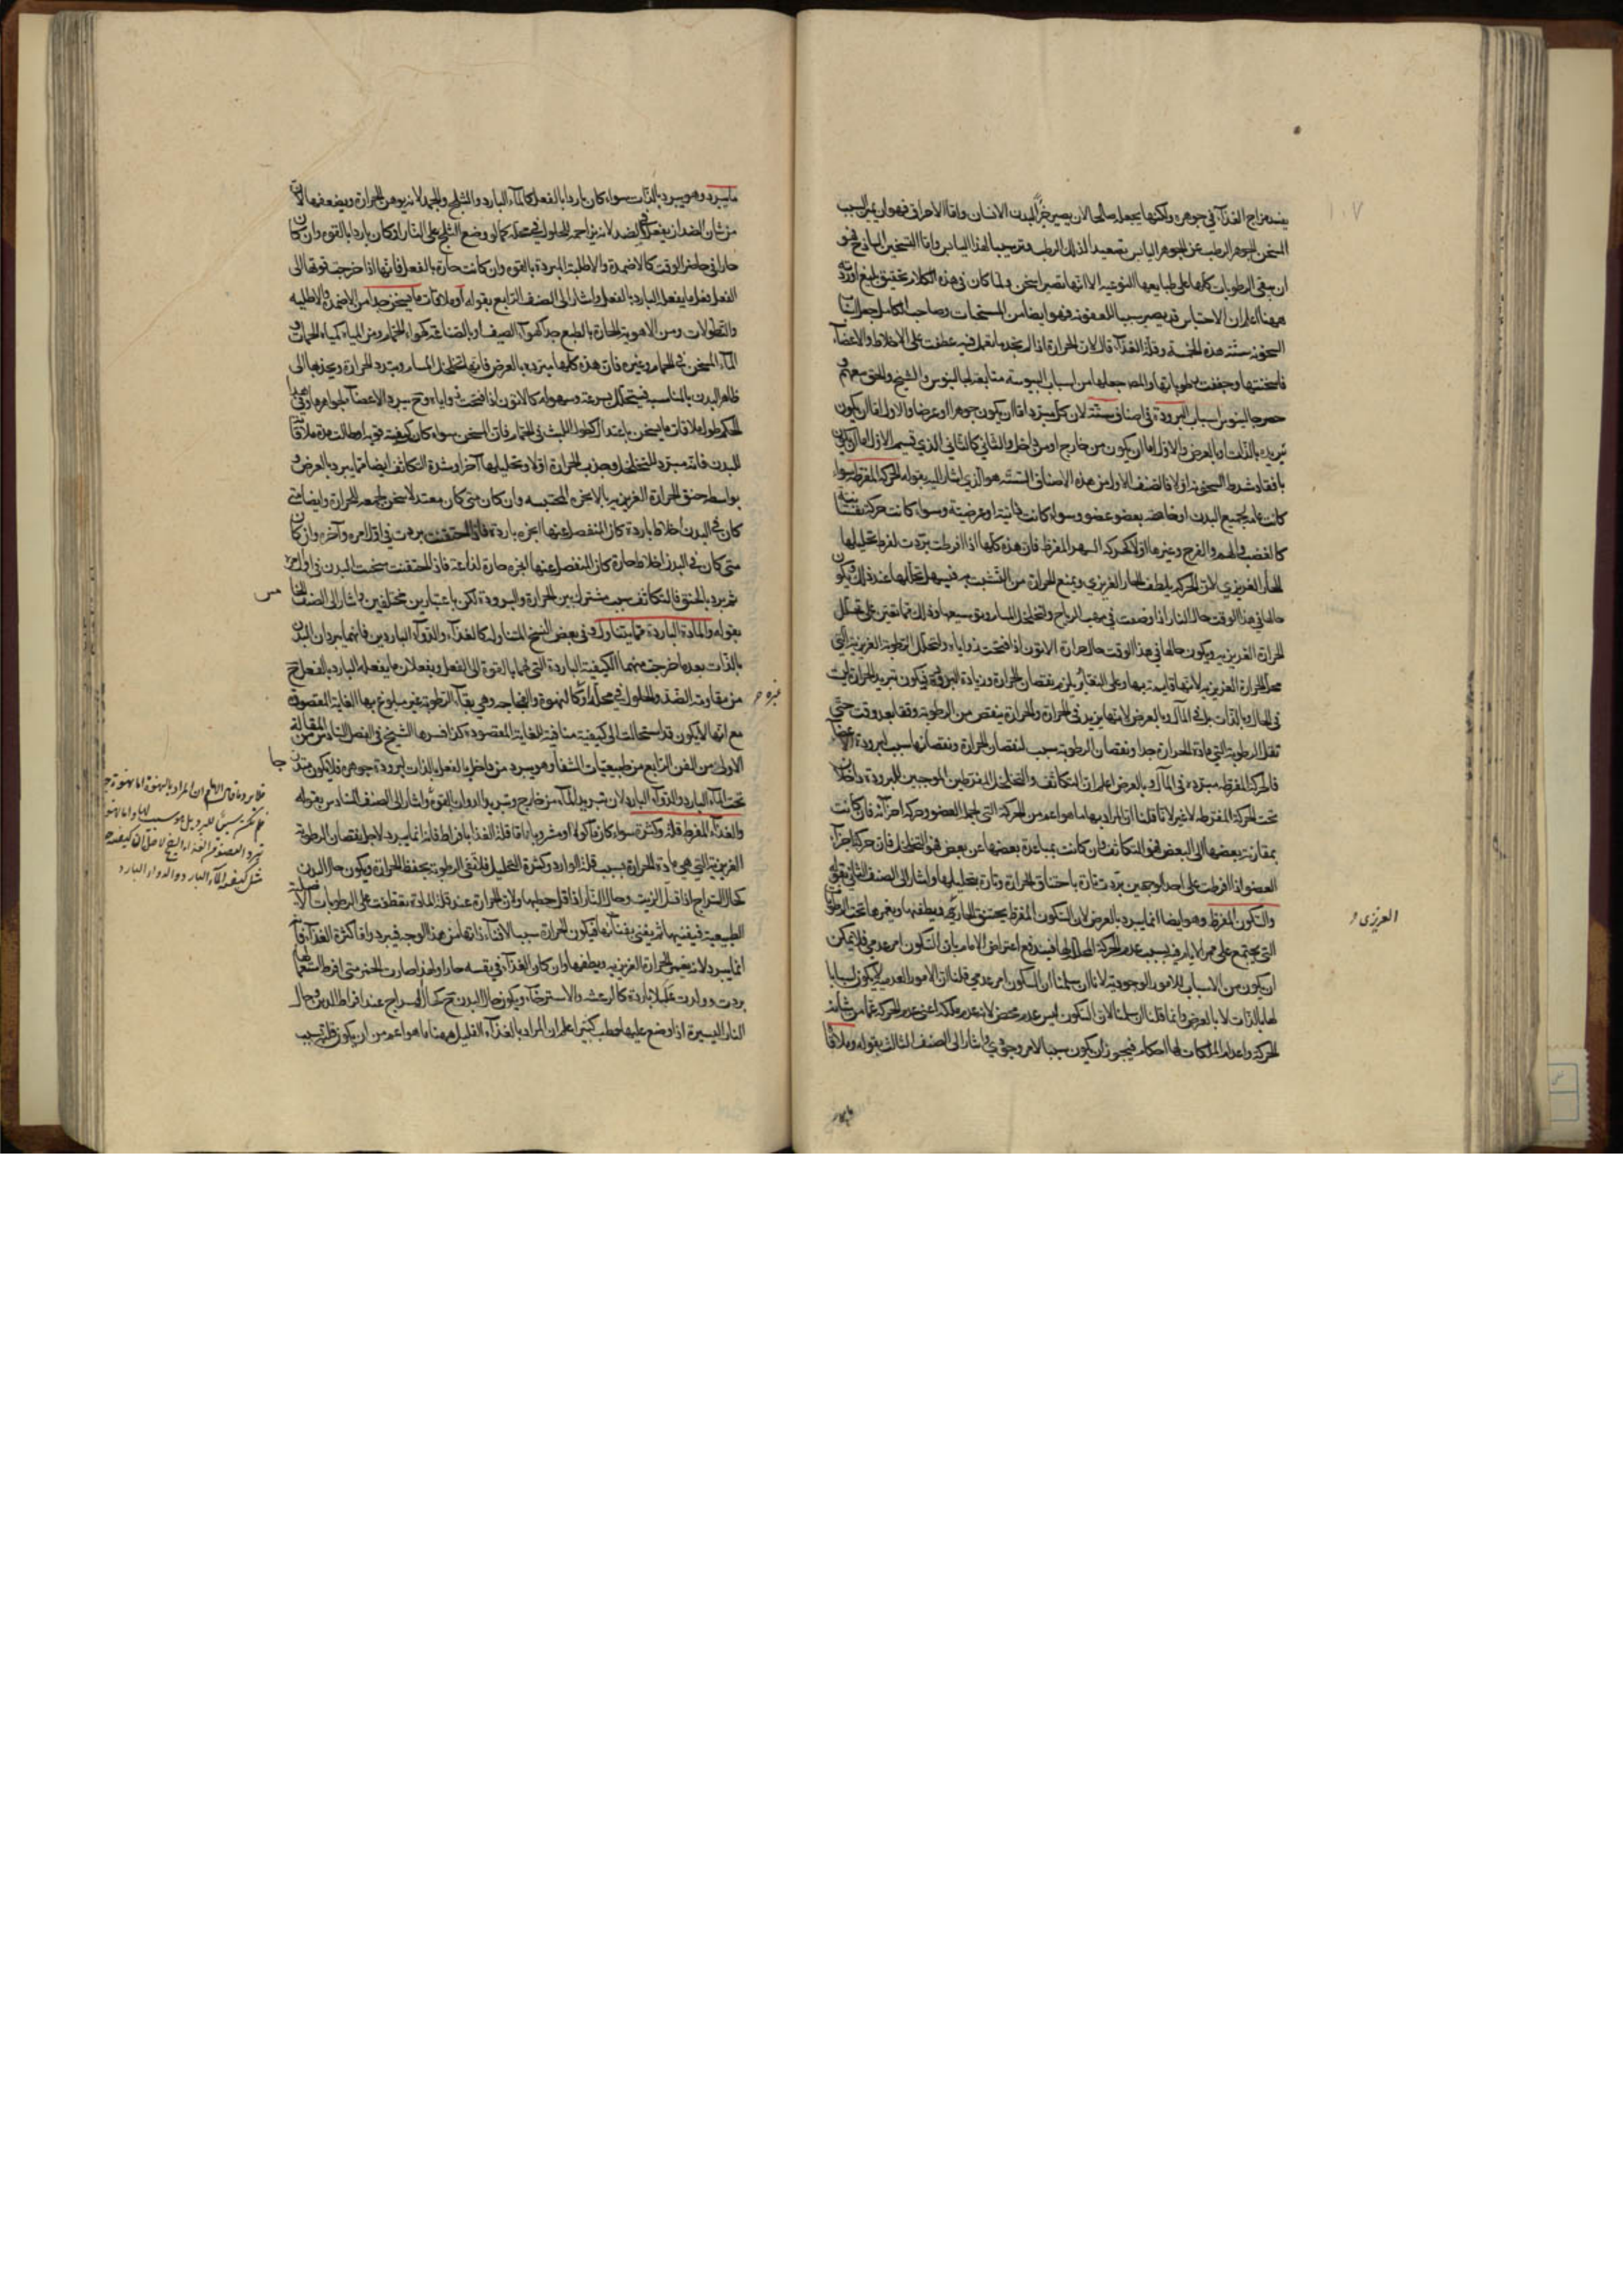 ١٠٧
يفسد مزاج الغذاء في جوهره ولكنها يجعله صالحا لان يصير جزأ لبدن الانسان واما الاحراق فهو ان يميز السبب
المسخن الجوهر الرطب عن الجوهر اليابس بتصعيد الذلك الرطب وترسيبا لهذا اليابس واما التسخين الساذج فهو
ان يبقى الرطوبات كلها على طبايعها النوعية الا انها تصير اسخن ولما كان في هذه الكلام تحقيق بليغ اوردته
ههنا اعلم ان الاحتباس قد يصير سببا للعفونة فهو ايضا من المسخنات وصاحب الكامل جعل اسباب
السخونة ستة هذه الخمسة وقلة الغذاء قال لان الحرارة اذا لم يجد ما تعمل فيه عطفت على الاخلاط والاعضاء
فاسخنتها وجففت رطوباتها والمص جعلها من اسباب اليبوسة متابعة لجالينوس والشيخ والحق معهم
حصر جالينوس اسباب البرودة في اصناف ستة لان كل مبرد اما ان يكون جوهرا او عرضا والاول اما ان يكون
تبريده بالذات او بالعرض والاول اما ان يكون من خارج او من داخل والثاني كالثاني الذي قسيم الاول اما ان يكون
بافقاد شرط السخونة او لا فالصنف الاول من هذه الاصناف الستة هو الذي اشار اليه بقوله الحركة المفرطة سواء
كانت عامة لجميع البدن او خاصة ببعض عضو وسواء كانت ذاتية او عرضية وسواء كانت حركة نفسانية
كالغضب والهم والفرح وغيرها او لا كحركة السهر المفرط فان هذه كلها اذا افرطت بردت لفرط تحليلها
للحار الغريزي لان الحركة يلطف الحار الغريزي ويمنع الحرارة من التشبث به فيسهل تحللها عند ذلك ويكون
حالها في هذا الوقت حال النار اذا وضعت في مهب الرياح
الحرارة الغريزية ويكون حالها في هذا الوقت حال حرارة الاتون اذا فتحت زواياه ولتحلل الرطوبة الغريزية التي
محل الحرارة الغريزية لانها قايمة بها وعلى التقادير يلزم نقصان الحرارة وزيادة البرودة فيكون تبريد الحرارة ليست
في الحال وبالذات بل في المآل وبالعرض لانها يزيد في الحرارة والحرارة ينقص من الرطوبة وقتا بعد وقت حتى
تقل الرطوبة التي مادة للحرارة جدا ونقصان الرطوبة سبب لنقصان الحرارة ونقصانها سبب لبرودة الاعضاء
فالحركة المفرطة مبردة في المآل وبالعرض اعلم ان التكاثف والتخلخل المفرطين الموجبين للبرودة داخلان
تحت الحركة المفرطة لا غير لانا قلنا ان المراد بها ما هو اعم من الحركة التي لجملة العضو وحركة اجزائه فان كانت
بمقارنة بعضها الى البعض فهو التكاثف وان كانت بمباعدة بعضها عن بعض فهو التخلخل فان حركة اجزاء
العضو اذا افرطت على احد الوجهين بردت تارة باختناق الحرارة وتارة بتحليلها واشار الى الصنف الثاني بقوله
والسكون المفرط وهو ايضا انما يبرد بالعرض لان السكون المفرط يخنق الحار ويطفئها ويغمرها تحت الرطوبات
التي يجتمع على مر الايام فيه بسبب عدم الحركة المحللة لها فيندفع اعتراض الامام بان السكون امر عدمي فلا يمكن
ان يكون من الاسباب للامور الوجودية لانا ان سلمنا ان السكون امر عدمي قلنا ان الامور العدمية لا يكون اسبابا
لها بالذات لا بالعرض وانما قلنا ان سلمنا لان السكون ليس عدم محض لانه عدم ملكة اعني عدم الحركة عما من شأنه
الحركة واعدام الملكات لها احكام فيجوز ان يكون سببا لامر وجودي واشار الى الصنف الثالث بقوله وملاقاة
الغريزي و
ما يبرد وهو يبرد بالذات سواء كان باردا بالفعل كالماء البارد والثلج والجمد لانه يوهن الحرارة ويضعفها لان
من شان الضد ان يفعل في الضد لانه يزاحمه للحلول في محله كما لو وضع الثلج على النار او كان باردا بالقوة وان كان
حارا في حاضر الوقت كالاضمدة والاطلية المبردة بالقوة وان كانت حارة بالفعل فانها اذا خرجت قوتها الى
الفعل فعل ما يفعل البارد بالفعل واشار الى الصنف الرابع بقوله او ملاقات ما يسخن جدا من الاضمدة والاطلية
والنطولات ومن الاهوية الحارة بالطبع جدا كهواء الصيف او بالصناعة كهواء الحمام ومن المياه كمياه الحمات و
الماء المسخن في الحمام وغيره فان هذه كلها مبردة بالعرض فانها لتخلخل المسام ويبدد الحرارة ويجذبها الى
ظاهر البدن بالمناسبة فيتحلل بسرعة وسهولة كالاتون اذا فتحت زواياه وح يبرد الاعضاء لجواهرها وفي هذا
الحكم طول ملاقات ما يسخن باعتدال كطول اللبث في الحمام فان المسخن سواء كان كيفيته قوية او طالت مدة ملاقاته
للبدن فانه مبرد للتخلخل وجذب الحرارة اولا وتحليلها آخرا وشدة التكاثف ايضا مما يبرد بالعرض و
بواسطة حنق الحرارة الغريزية بالابخرة المحتبسة وان كان متى كان معتدلا يسخن لجمعه للحرارة وايضا متى
كان في البدن اخلاط باردة كان المنفصل عنها ابخرة باردة فاذا احتقنت بردت في اول الامر وآخره وان كان
متى كان في البدن اخلاط حارة كان المنفصل عنها ابخرة حارة لذاعة فاذا احتقنت سخنت البدن في اول الامر
ثم يبرد بالخنق فالتكاثف سبب مشترك بين الحرارة والبرودة لكن باعتبارين مختلفين واشار الى الصنف الخامس
بقوله والمادة الباردة مما يتناول وفي بعض النسخ المتناولة كالغذاء والدواء الباردين فانهما يبردان البدن
بالذات بعد ما خرجت منهما الكيفية الباردة التي لهما بالقوة الى الفعل ويفعلان ما يفعله البارد بالفعل ح
من مقاومته الضد والحلول في محله وكالنهوة والفجاجة وهي بقاء الرطوبة غير مبلوغ بها الغاية المقصودة
مع انها لا يكون قد استحالت الى كيفية منافية للغاية المقصودة كذا فسرها الشيخ في الفصل السادس من المقالة
الاولى من الفن الرابع من طبيعيات الشفا وهو يبرد من داخل بالفعل بالذات لبرودة جوهره فلا يكون مندرجا
تحت الماء البارد والدواء البارد لان تبريد الماء من خارج وتبريد الدواء بالقوة واشار الى الصنف السادس بقوله
والغذاء المفرط قلة وكثرة سواء كان مأكولا او مشروبا اما قلة الغذاء بافراط فانه انما يبرد لاجل نقصان الرطوبة
الغريزية التي هي مادة الحرارة بسبب قلة الوارد وكثرة التحليل فلا تبقى الرطوبة تحفظ الحرارة ويكون حال البدن
كحال السراج اذا قل الزيت وحال النار اذا قل حطبها ولان الحرارة عند قلة المادة تعطف على الرطوبات الاصلية
الطبيعية فيفنيها ثم يفنى بفنائها فيكون الحرارة سببا لافناء ذاتها من هذا الوجه فيبرد واما كثرة الغذاء فانه
انما يبرد لانه يغمر الحرارة الغريزية ويطفئها وان كان الغذاء في نفسه حارا ولهذا صارت الخمر متى افرط استعمالها
بردت وولدت عللا باردة كالرعشة والاسترخاء ويكون حال البدن ح كحال السراج عند افراط الدهن وحال
النار اليسيرة اذا وضع عليها حطب كثير اعلم ان المراد بالغذاء القليل ههنا ما هو اعم من ان يكون قلته بسبب
غيره ح
فلا يرد ما قال الامام ان المراد بالنهوة
مثل كيفية الماء البارد والدواء البارد